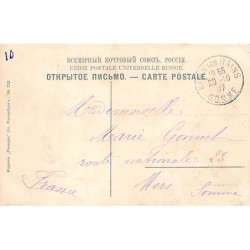 10
ВСЕМІРНЫЙ ПОЧТОВЫЙ СОЮЗЪ. РОССІЯ.
UNION POSTALE UNIVERSELLE RUSSIE.
ОТКРЫТОЕ ПИСЬМО. — CARTE POSTALE.
SOMME
Mademoiselle
Marie Gonnet
route nationale 23
Mers Somme
France